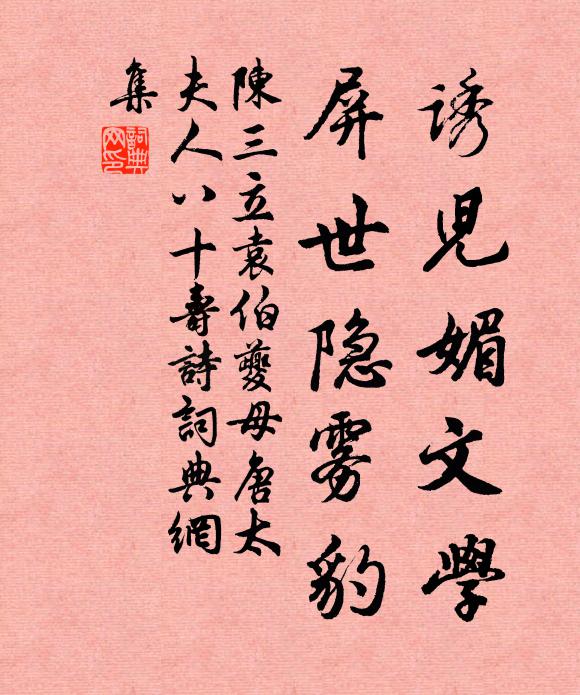 誘兒媚文學
屏世隐雾豹
陳三立袁伯夔母唐太
夫人八十壽詩詞典網
集
詞典网印